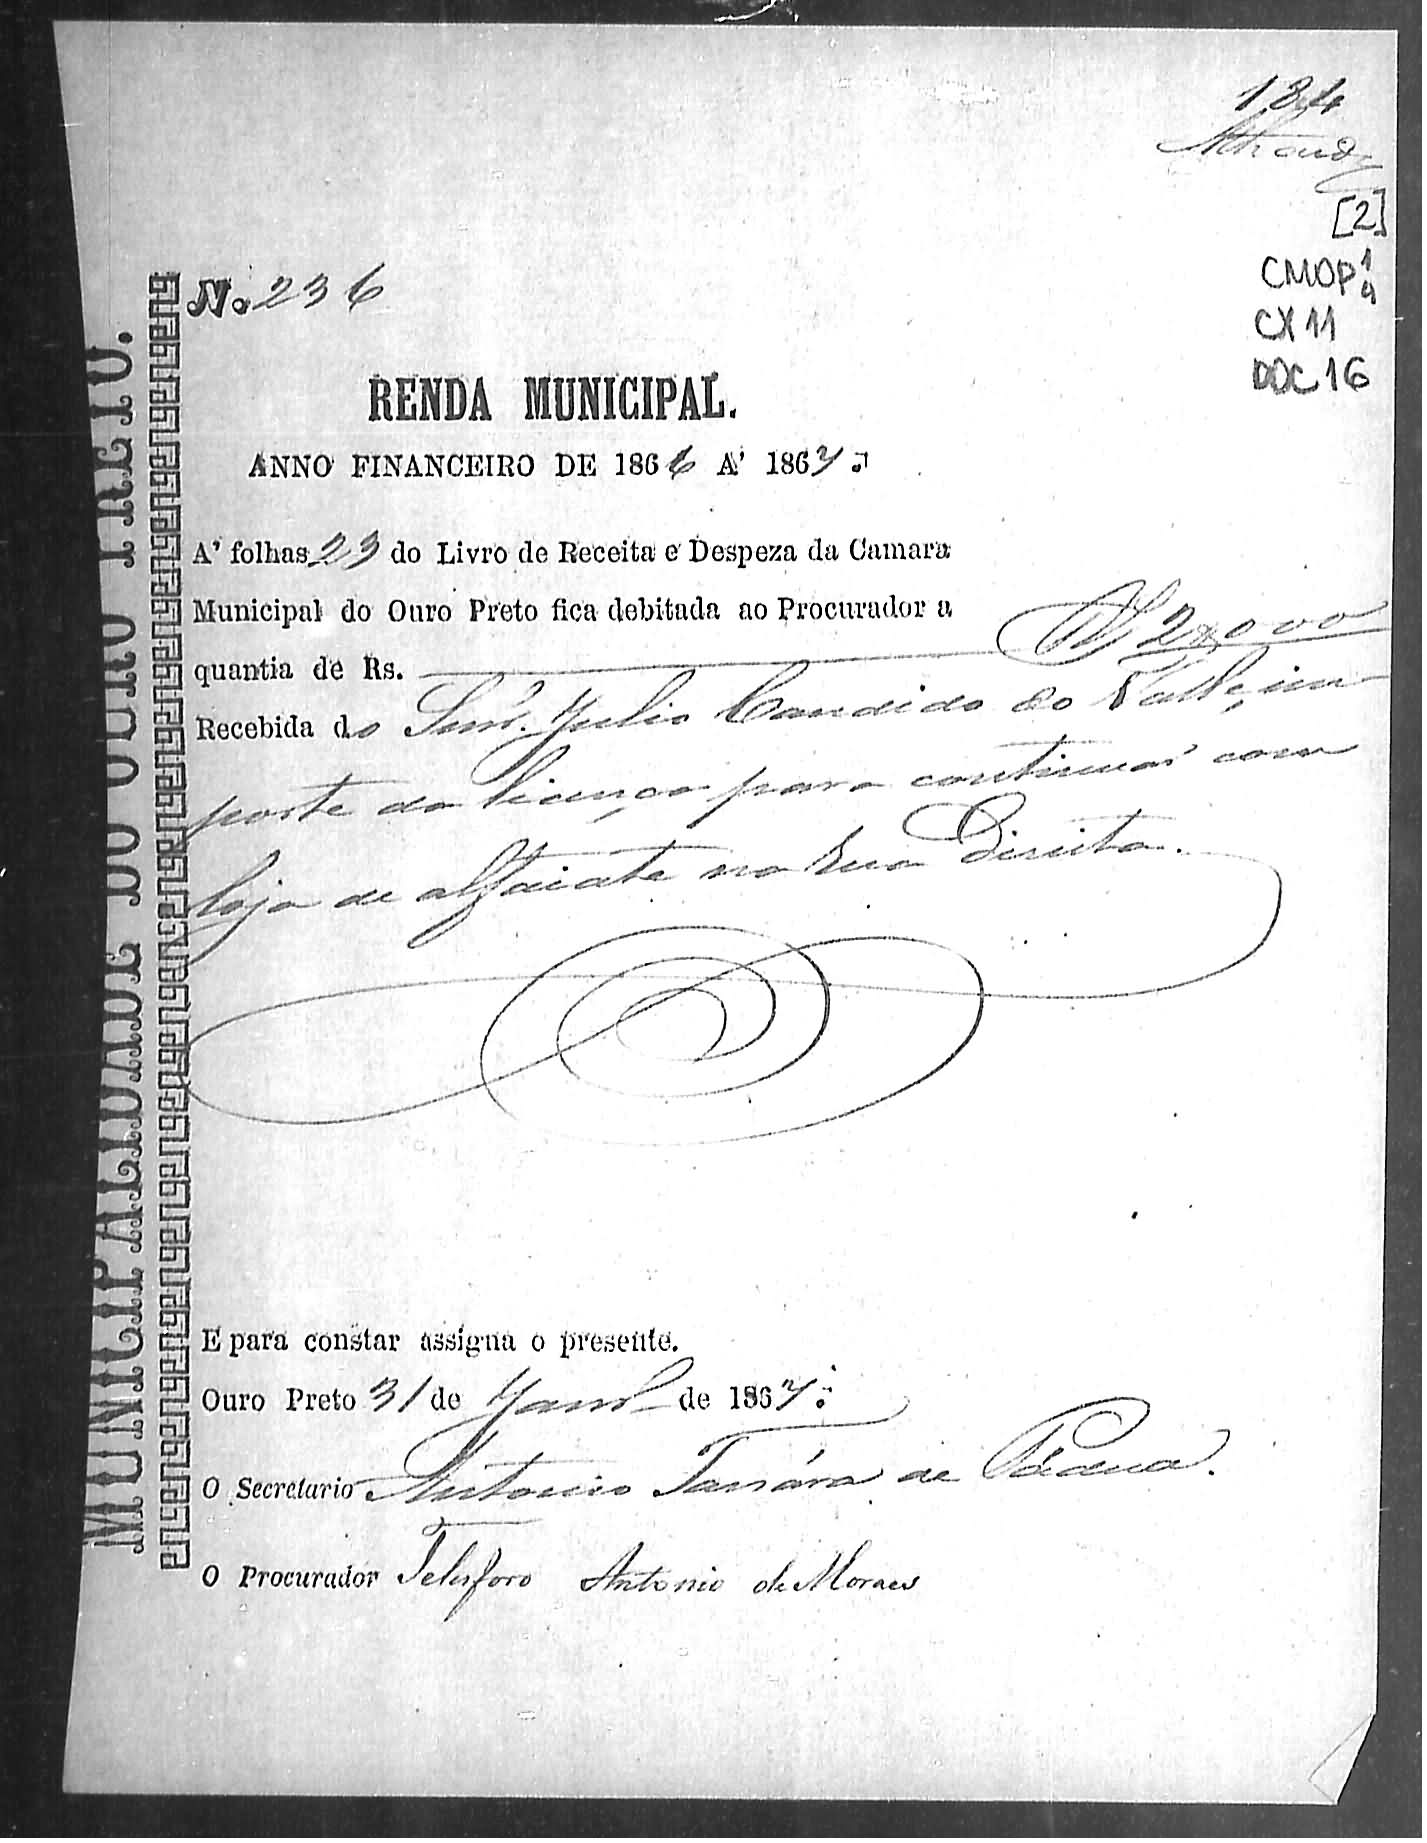 184
[2]
CMOP 1
4
CX 11
DOC 16
MUNICIPALIDADE DO OURO PRETO.
N. 236
RENDA MUNICIPAL.
ANNO FINANCEIRO DE 1866 A' 1867.
A' folhas 23 do Livro de Receita e Despeza da Camara
Municipal do Ouro Preto fica debitada ao Procurador a
quantia de Rs. 2$000
Recebida do Snr. Julio Candido do Valle, im-
porte da licença para continuar com
loja de alfaiate na Rua Direita.
E para constar assigna o presente.
Ouro Preto 31 de Janrº de 1867.
O Secretario Antonio de Padua.
O Procurador Telesforo Antonio de Moraes